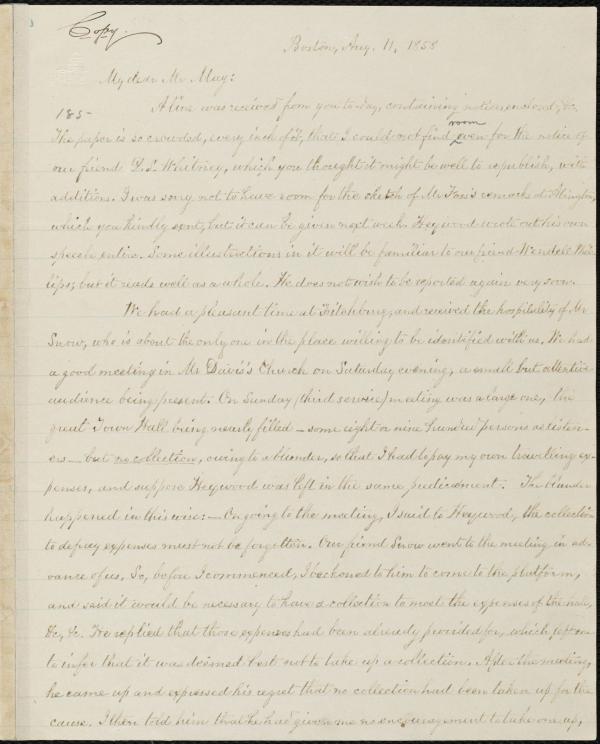 Copy.
Boston, Aug. 11, 1858
My dear Mr. May:
185-
A line was received from you to-day, containing notices enclosed, &c.
room
The paper is so crowded, every inch of it, that I could not find even for the notice of
our friend D. S. Whitney, which you thought it might be well to republish, with
additions. I was sorry not to have room for the sketch of Mr Foss's remarks at Abington,
which you kindly sent, but it can be given next week. Heywood wrote out his own
speech, entire. Some illustrations in it will be familiar to our friend Wendell Phil-
lips; but it reads well as a whole. He does not wish to be reported again very soon.
We had a pleasant time at Fitchburg, and received the hospitality of Mr
Snow, who is about the only one in the place willing to be identified with us. We had
a good meeting in Mr Davis's Church on Saturday evening, a small but attentive
audience being present. On Sunday (third service) meeting was a large one, the
great Town Hall being nearly filled — some eight or nine hundred persons as listen-
ers — but no collection, owing to a blunder, so that I had to pay my own travelling ex-
penses, and suppose Heywood was left in the same predicament. The blunder
happened in this wise: — On going to the meeting, I said to Heywood, the collection
to defray expenses must not be forgotten. Our friend Snow went to the meeting in ad-
vance of us. So, before I commenced, I beckoned to him to come to the platform,
and said it would be necessary to have a collection to meet the expenses of the hall,
&c, &c. He replied that those expenses had been already provided for, which left me
to infer that it was deemed best not to take up a collection. After the meeting,
he came up and expressed his regret that no collection had been taken up for the
cause. I then told him that he had given me no encouragement to take one up,